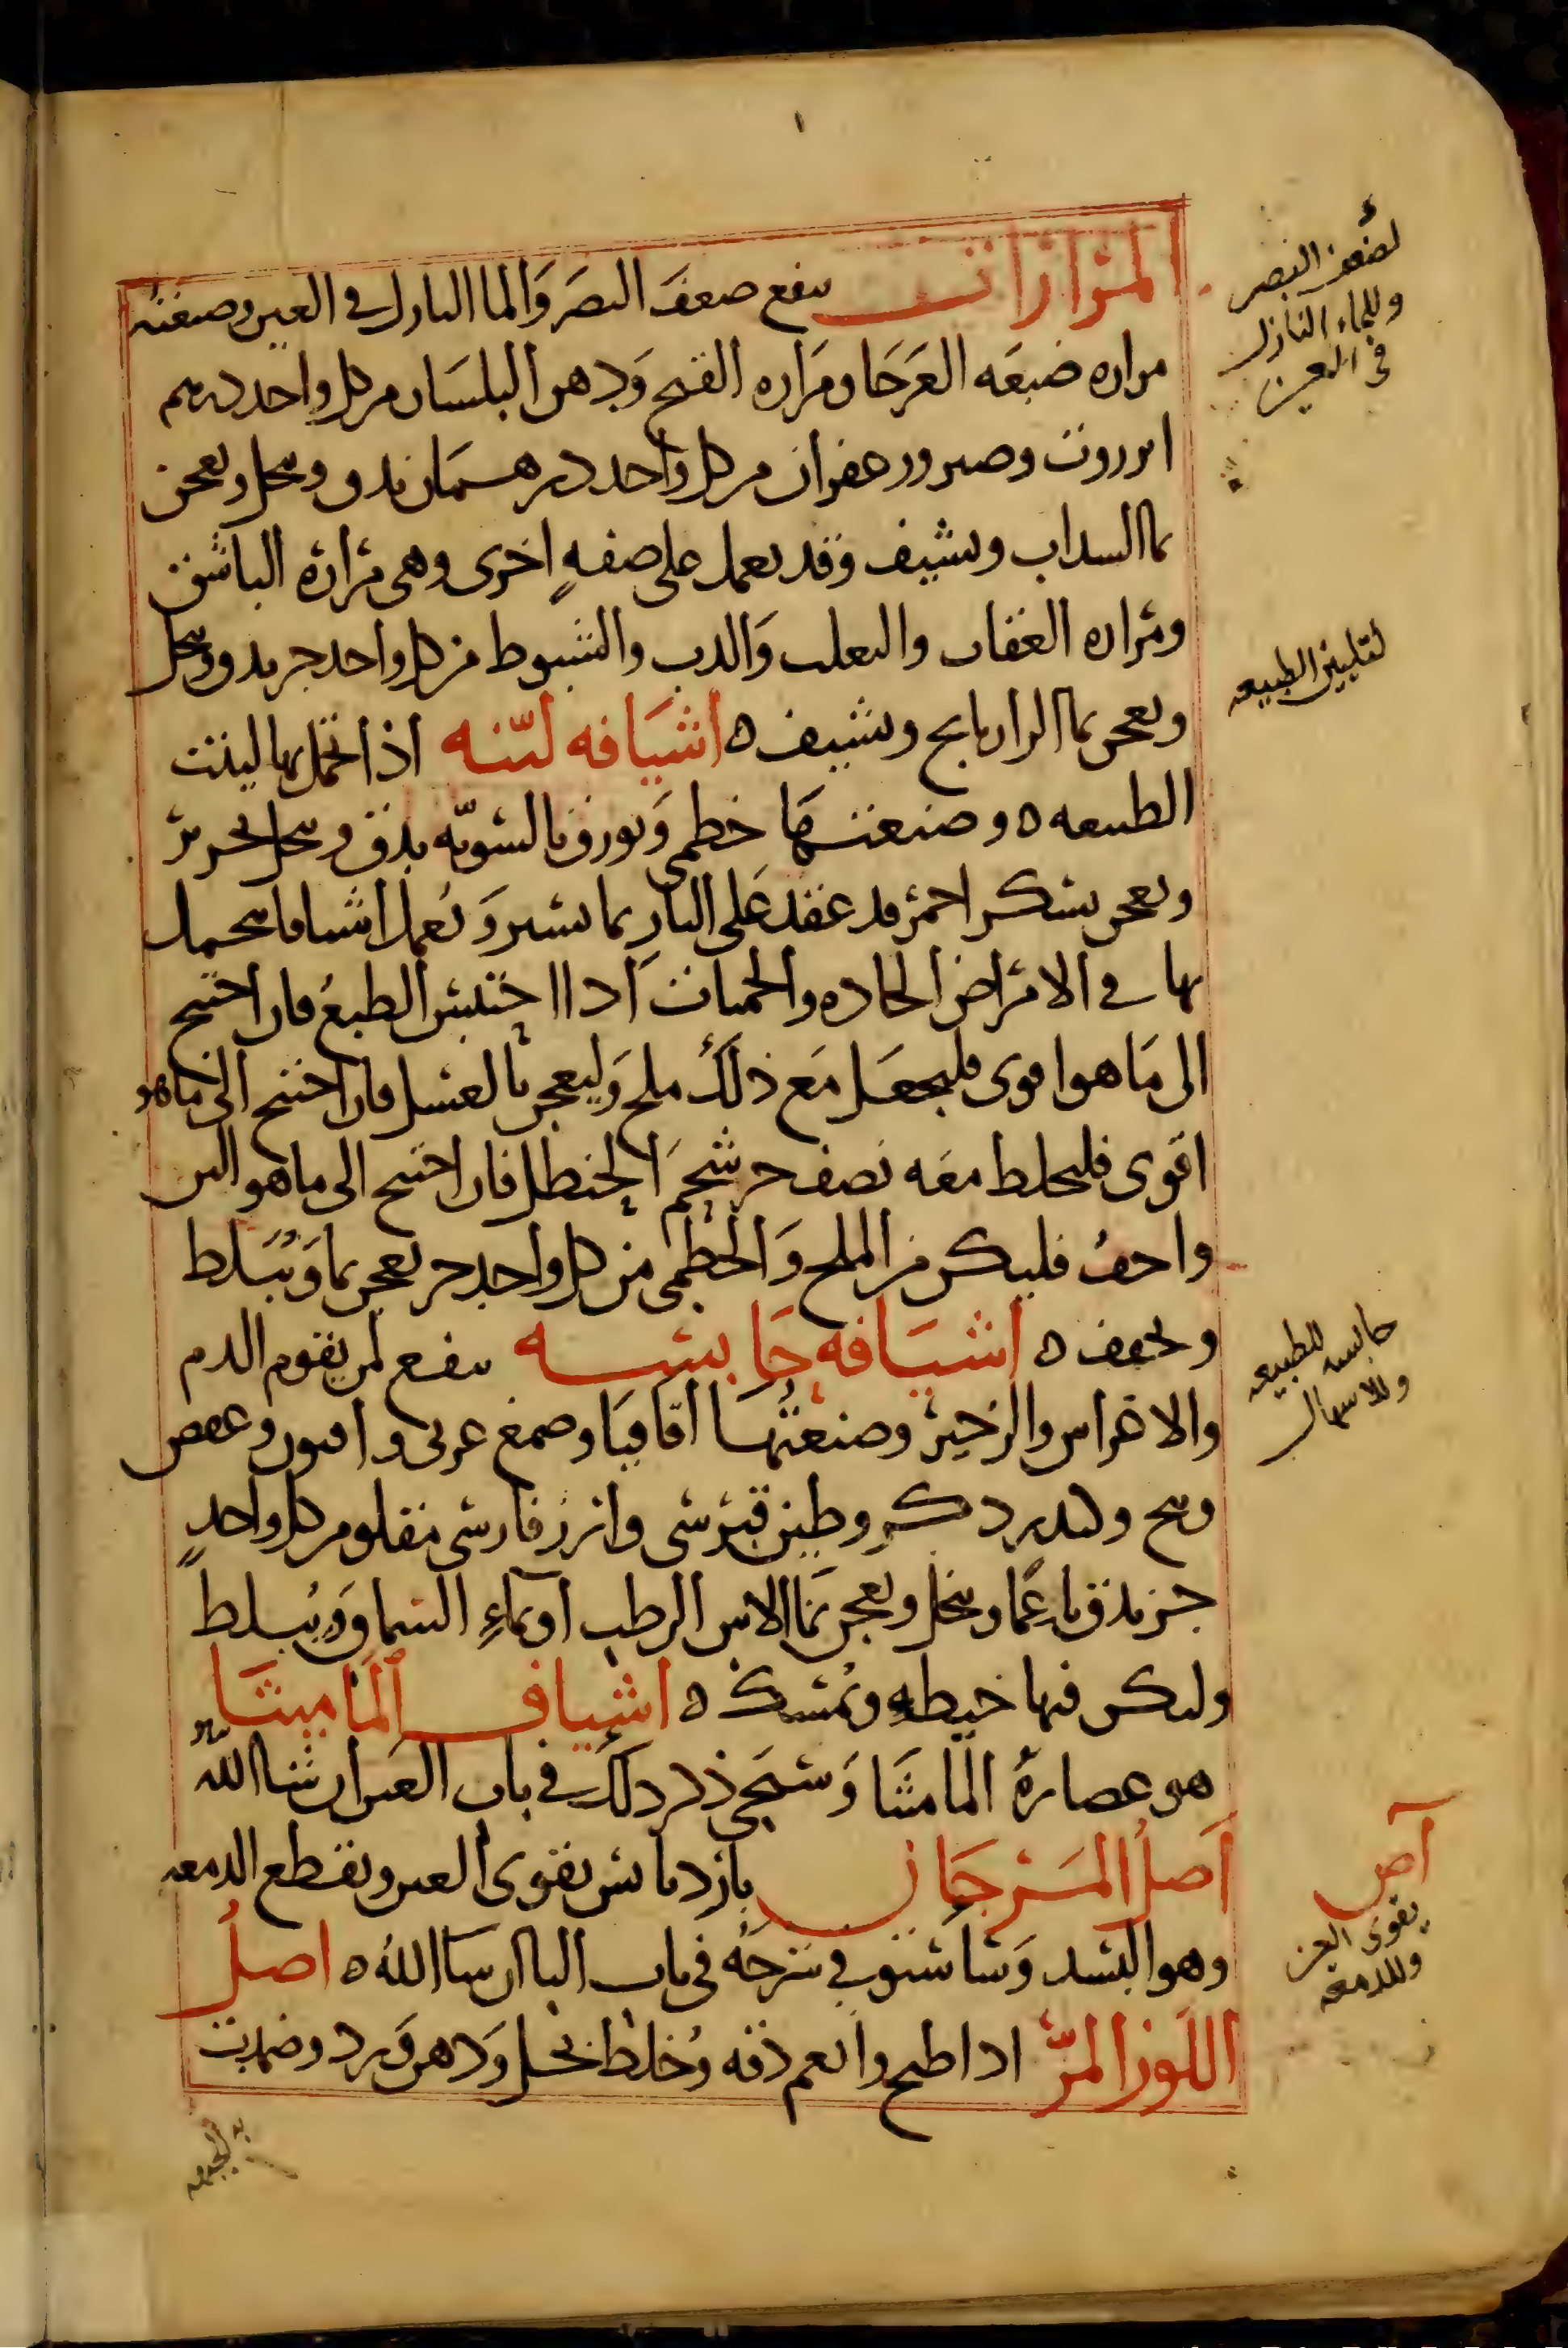 المرارات ينفع ضعف البصر والما النازل في العين وصنعته
مراره ضبعه العرجا ومراره القبج ودهن البلسان من كل واحد درهم
انزروت وصبر وزعفران من كل واحد درهمان يدق وينخل ويعجن
بما السداب ويشيف وقد يعمل على صفةٍ اخرى وهى مرارة الباشق
ومراره العقاب والثعلب والدب والشبوط من كل واحد جز يدق وينخل
ويعجن بما الرازيانج ويشيف ه اشيافه لينه اذا تحمل بها لينت
الطبيعه ه وصنعتها خطمى وبورق بالسويه يدق وينخل بحرير
ويعجن بسكر احمر قد عقد على النار بما يسير ويعمل اشيافا يتحمل
بها في الامراض الحاده والحميات اذا احتبس الطبع فان احتيج
الى ما هو اقوى فليجعل مع ذلك ملح وليعجن بالعسل فان احتيج الى ما هو
اقوى فليخلط معه نصف جز شحم الحنظل فان احتيج الى ما هو الين
واخف فليكن من الملح والخطمى من كل واحد جز يعجن بما ويبلط
ويجفف ه اشيافه حابسه ينفع لمن يقوم الدم
والاغراس والزحير وصنعتها اقاقيا وصمغ عربى وافيون وعفص
وبنج وكندر ذكر وطين قبرسى وارز فارسى مقلو من كل واحدٍ
جز يدق ناعما وينخل ويعجن بما الاس الرطب او بماء السماق ويبلط
وليكن فيها خيطه ويمسك ه اشياف الماميتا
هو عصارة الماميثا وسيجى ذكر ذلك في باب العين ان شا الله تعالى
اصل المرجان بارد يابس يقوى العين ويقطع الدمعه
وهو البسد وساستوفي شرحه في باب البا ان شا الله ه اصل
اللوز المر اذا طبخ وانعم دقه وخلط بخل ودهن ورد وضمدت
به الجبهه
لضعف البصر
وللماء النازل
فى العين
لتليين الطبيعه
حابسه للطبيعه
وللاسهال
آص
يقوى العين
وللدمعه